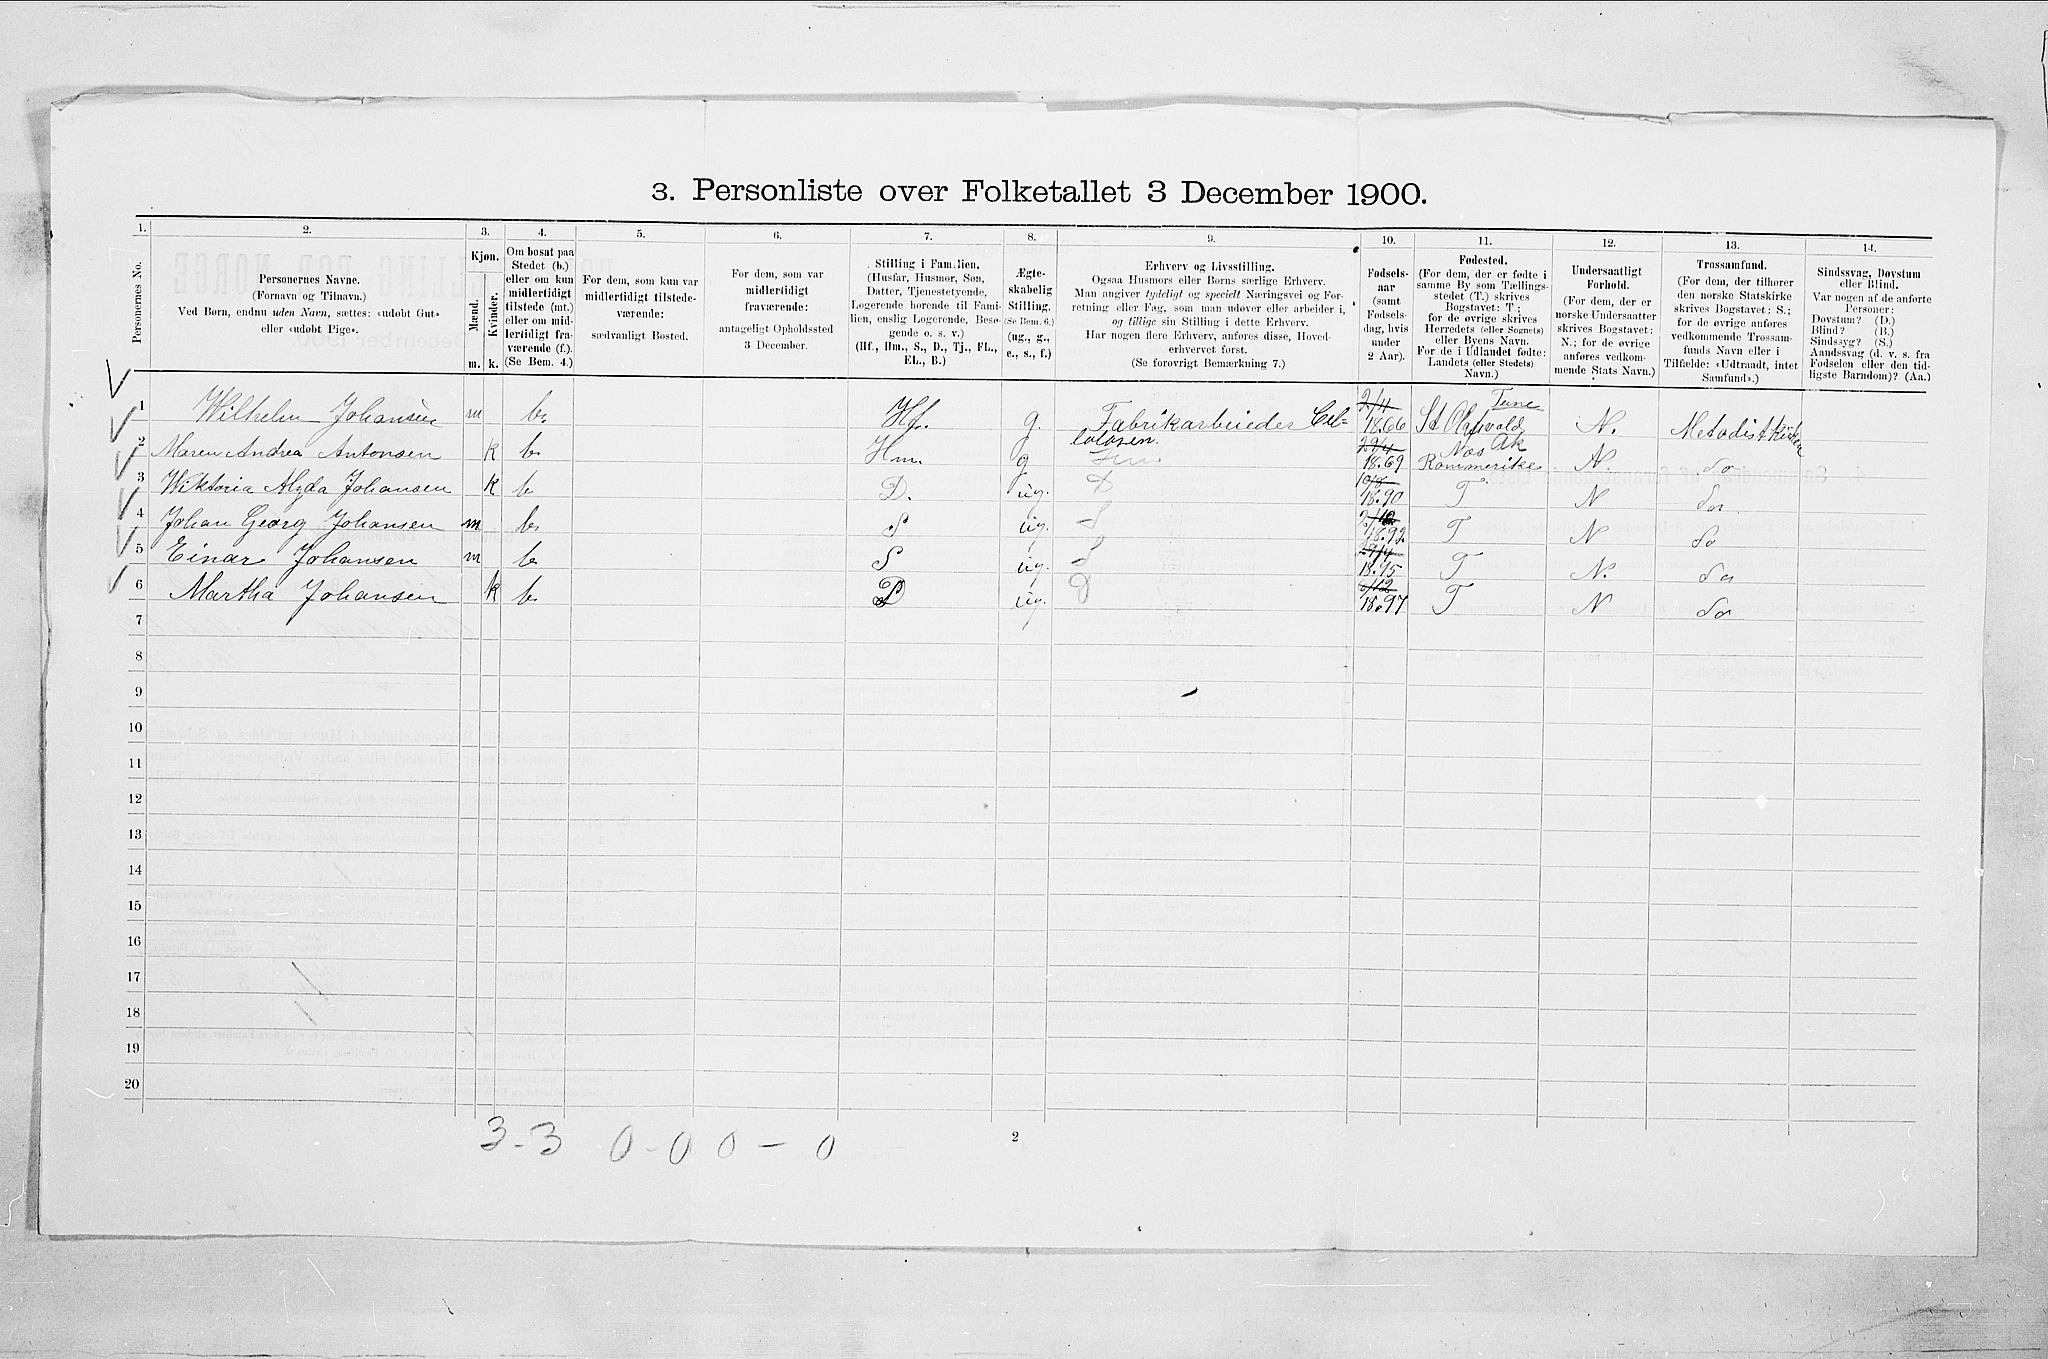 3. Personliste over Folketallet 3 December 1900.
1. 2. 3. 4. 5. 6. 7. 8. 9. 10. 11. 12. 13. 14.
Personernes No.
Personernes Navne.
(Fornavn og Tilnavn.)
Ved Børn, endnu uden Navn, sættes: «udøbt Gut»
eller «udøbt Pige».
Kjøn.
Mænd.
Kvinder.
m. k.
Om bosat paa
Stedet (b.)
eller om kun
midlertidigt
tilstede (mt.)
eller om mid-
lertidigt fra-
værende (f.).
(Se Bem. 4.)
For dem, som kun var
midlertidigt tilstede-
værende:
sædvanligt Bosted.
For dem, som var
midlertidigt
fraværende:
antageligt Opholdssted
3 December.
Stilling i Familien.
(Husfar, Husmor, Søn,
Datter, Tjenestetyende,
Logerende hørende til Fami-
lien, enslig Logerende, Besø-
gende o. s. v.)
(Hf., Hm., S., D., Tj., FL.,
EL., B.)
Ægte-
skabelig
Stilling.
(Se Bem. 6.)
(ug., g.,
e., s., f.)
Erhverv og Livsstilling.
Ogsaa Husmors eller Børns særlige Erhverv.
Man angiver tydeligt og specielt Næringsvei og For-
retning eller Fag, som man udøver eller arbeider i,
og tillige sin Stilling i dette Erhverv.
Har nogen flere Erhverv, anføres disse, Hoved-
erhvervet først.
(Se forøvrigt Bemærkning 7.)
Fødsels-
aar
(samt
Fødsels-
dag, hvis
under
2 Aar).
Fødested.
(For dem, der er fødte i
samme By som Tællings-
stedet (T.) skrives
Bogstavet: T.;
for de øvrige skrives
Herredets (eller Sognets)
eller Byens Navn.
For de i Udlandet fødte:
Landets (eller Stedets)
Navn.)
Undersaatligt
Forhold.
(For dem, der er
norske Undersaatter
skrives Bogstavet:
N.; for de øvrige
anføres vedkom-
mende Stats Navn.)
Trossamfund.
(For dem, der tilhører
den norske Statskirke
skrives Bogstavet: S.;
for de øvrige anføres
vedkommende Trossam-
funds Navn eller i
Tilfælde: «Udtraadt, intet
Samfund».)
Sindssvag, Døvstum
eller Blind.
Var nogen af de anførte
Personer:
Døvstum? (D.)
Blind? (B.)
Sindssyg? (S.)
Aandssvag (d. v. s. fra
Fødselen eller den tid-
ligste Barndom)? (Aa.)
1 Wilhelm Johansen m b. Hf. g. Fabrikarbeider Cel- 2/11 1866 St Olafsvold Tune N. Metodistkirken
2 Maren Andrea Antonsen k b. Hm. g lolosen. Hm. 29/4 1869 Næs Ak Rommerike N. do
3 Wiktoria Alyda Johansen k b D. ug. D 10/8 1890 T N do
4 Johan Georg Johansen m b. S ug. S 1892 T N do
5 Einar Johansen m b. S ug. S 29/4 1895 T N. do
6 Martha Johansen k b. D ug. D 1897 T N do
7
8
9
10
11
12
13
14
15
16
17
18
19
20
3-3 0-0 0-0
2